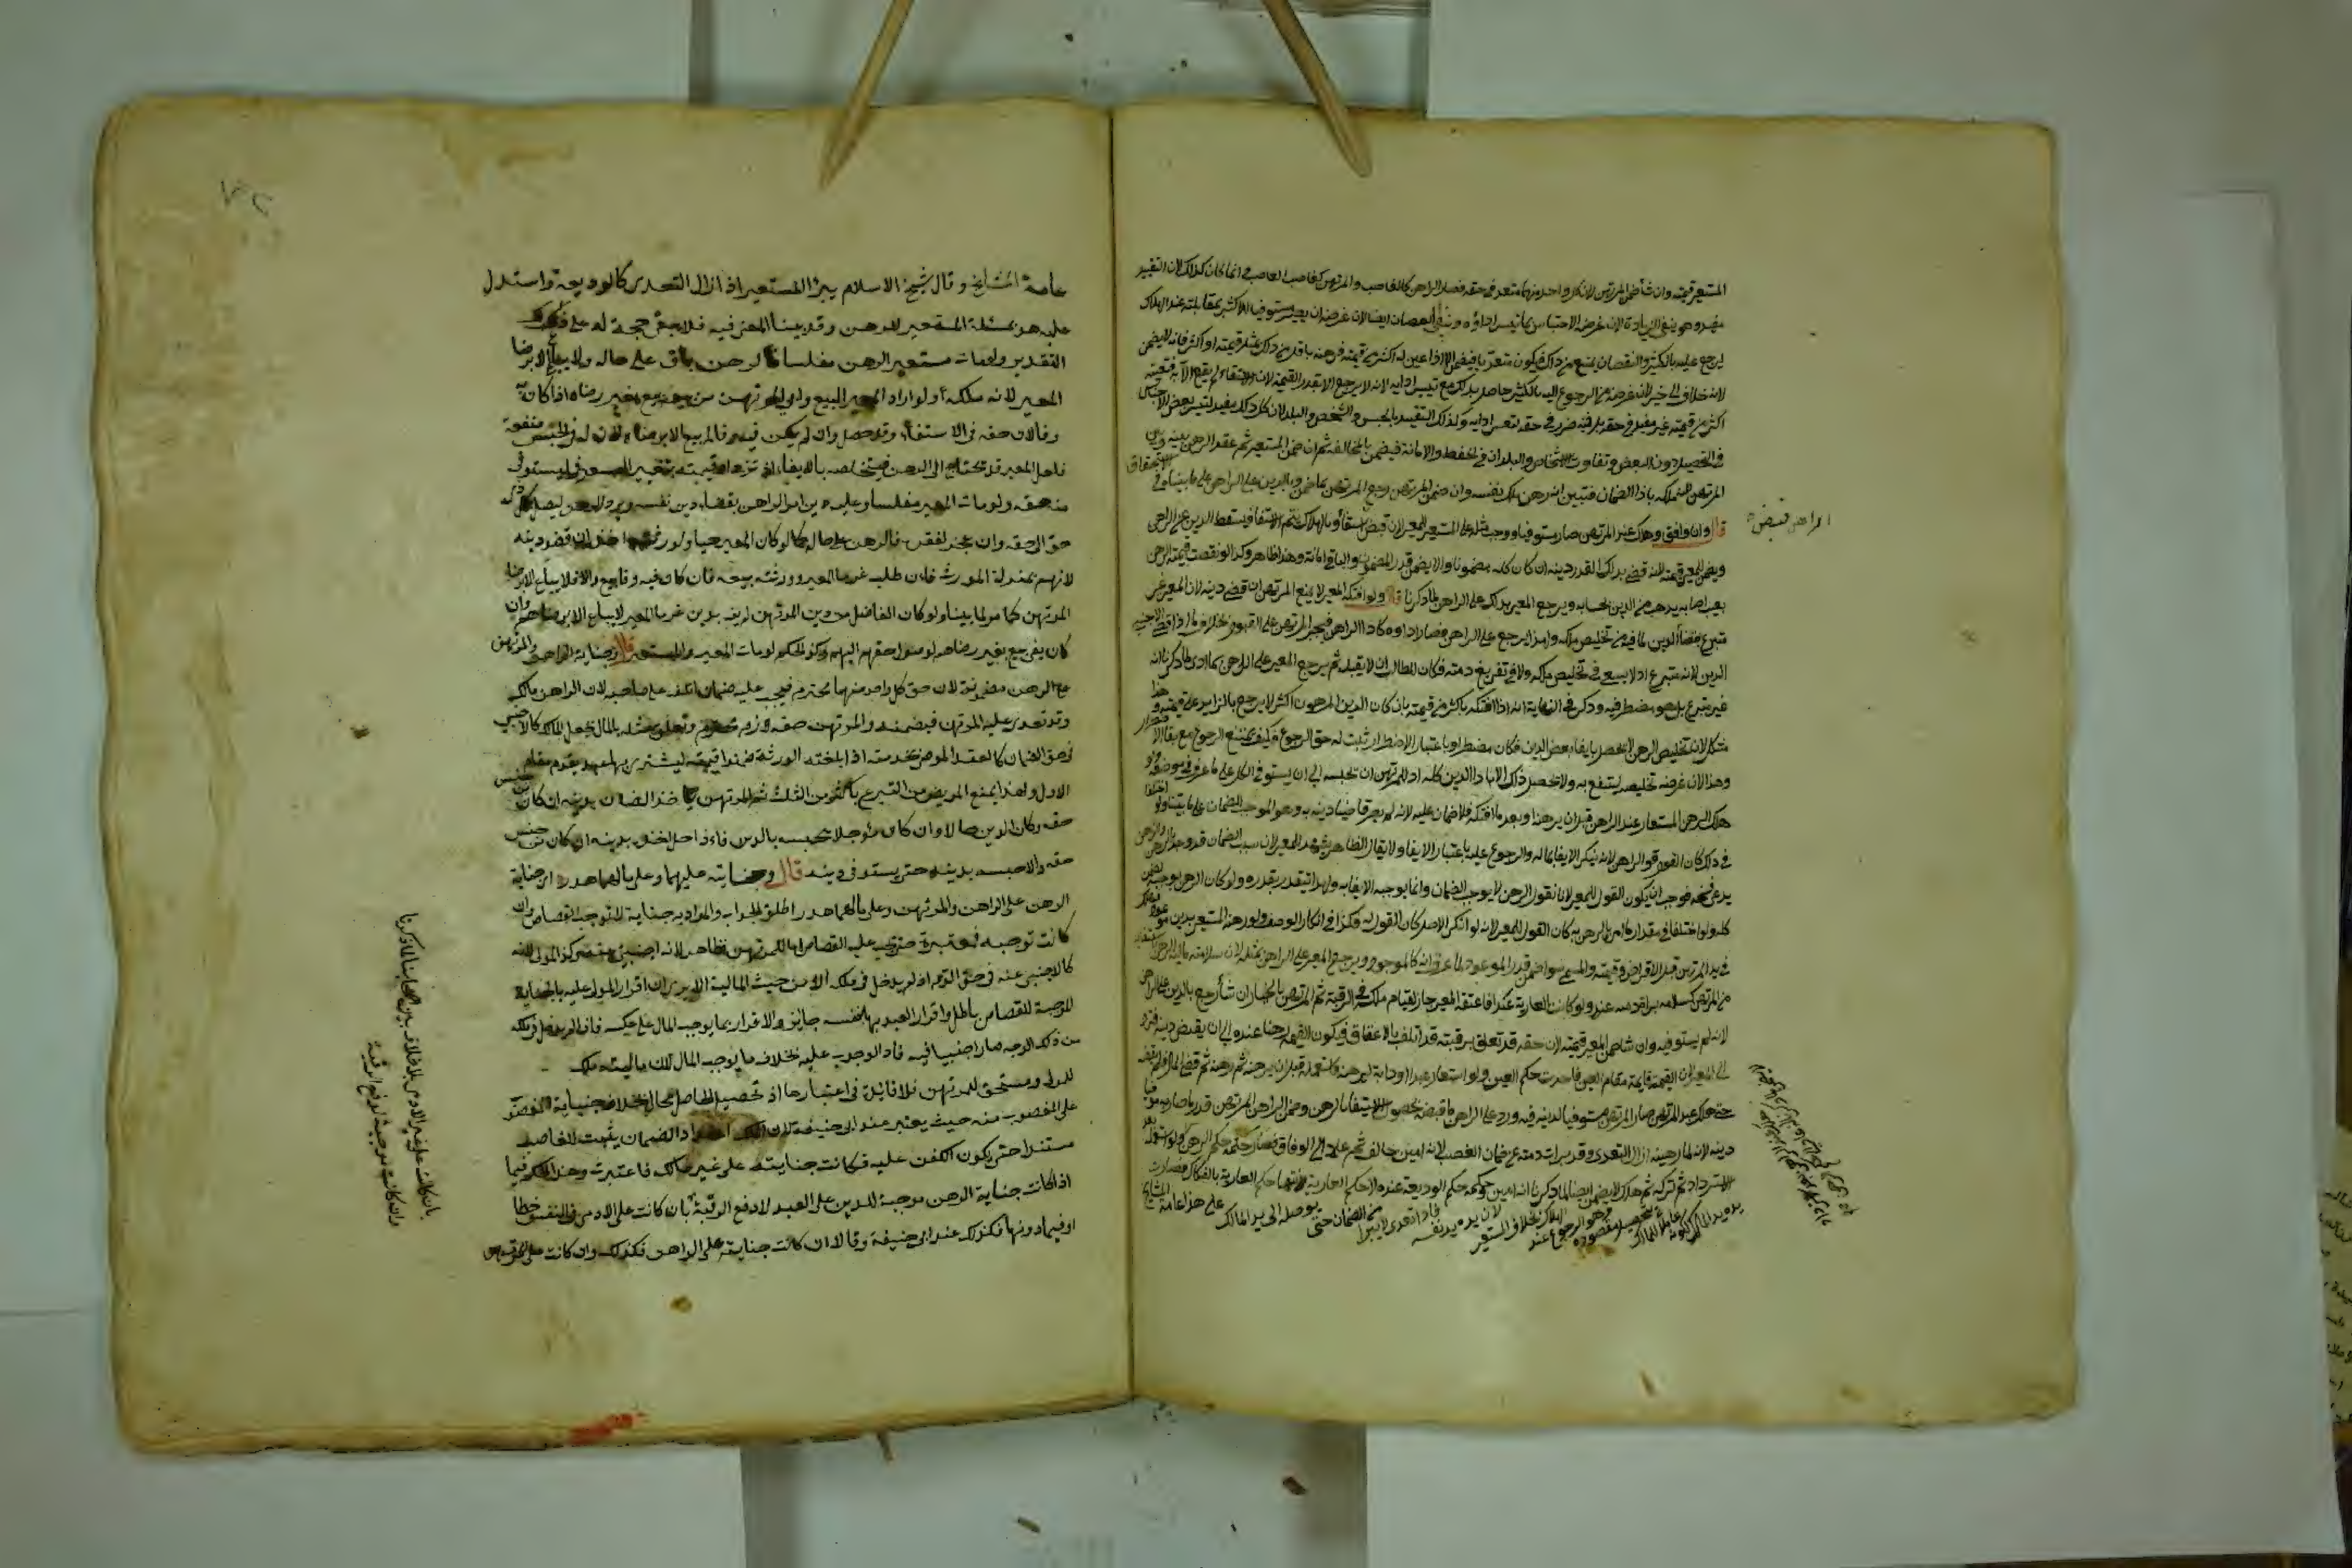 المستعير قيمته وان شاء ضمن المرتهن لان كل واحد منهما متعد في حقه فصار الراهن كالغاصب والمرتهن كغاصب الغاصب انما كان كذلك لان التقييد
مفيد وهو ينفي الزيادة لان غرضه الاحتباس بما تيسر اداؤه وينفي النقصان ايضا لان غرضه ان يصير مستوفيا للاكثر بمقابلته عند الهلاك
ليرجع عليه بالكثير والنقصان يمنع من ذلك فيكون متعديا فيضمن الا اذا عين له اكثر من قيمته فرهنه باقل من ذلك بمثل قيمته او اكثر فانه لا يضمن
لانه خلاف الى خير لان غرضه من الرجوع اليه بالكثير حاصل بذلك مع تيسر ادايه لانه لا يرجع الا بقدر القيمة لان الاستيفاء لم يقع الا به فتعيينه
اكثر من قيمته غير مفيد في حقه بل فيه ضرر في حقه لتعسر ادايه وكذلك التقييد بالجنس والشخص والبلد لان كل ذلك مفيد لتيسر بعض الاجناس
في التحصيل دون البعض وتفاوت الاشخاص والبلدان في الحفظ والامانة فيضمن بالمخالفة ثم ان ضمن المستعير تم عقد الرهن بينه وبين
المرتهن لانه ملكه باداء الضمان فتبين انه رهن ملك نفسه وان ضمن المرتهن رجع المرتهن بما ضمن وبالدين على الراهن على ما بيناه في الاستحقاق
قال وان وافق وهلك عند المرتهن صار مستوفيا ووجب مثله على المستعير للمعير لان قبض استيفاء وبالهلاك يتم الاستيفاء فيسقط الدين عن الراهن
الراهن قبض
ويضمن للمعير قيمته لانه قضى بذلك القدر دينه ان كان كله مضمونا والا يضمن قدر المضمون والباقي امانة وهذا ظاهر وكذا لو نقصت قيمة الرهن
بعيب اصابه يذهب من الدين بحسابه ويرجع المعير بذلك على الراهن لما ذكرنا قال ولو افتكه المعير لا يمنع المرتهن ان قضى دينه لان المعير غير
متبرع بقضاء الدين لما فيه من تخليص ملكه ولهذا يرجع على الراهن فصار اداؤه كاداء الراهن فيجبر المرتهن على القبول بخلاف ما اذا قضى الاجنبي
الدين لانه متبرع اذ لا يسعى في تخليص ملكه ولا في تفريغ ذمته فكان للطالب ان لا يقبله ثم يرجع المعير على الراهن بما ادى لما ذكرنا انه
غير متبرع بل هو مضطر فيه وذكر في النهاية انه اذا افتكه باكثر من قيمته بان كان الدين المرهون اكثر لا يرجع بالزايد على قيمته وهذا
مشكل لان تخليص الرهن لا يحصل بايفاء بعض الدين فكان مضطرا وباعتبار الاضطرار يثبت له حق الرجوع فكيف يمتنع الرجوع مع بقاء الاضطرار
وهذا لان غرضه تخليصه لينتفع به ولا يحصل ذلك الا باداء الدين كله اذ للمرتهن ان يحبسه الى ان يستوفي الكل على ما عرف في موضعه ولو
هلك الرهن المستعار عند الراهن قبل ان يرهنه او بعد ما افتكه فلا ضمان عليه لانه لم يصر قاضيا دينه به وهو الموجب للضمان على ما بينا ولو اختلفا
في ذلك كان القول قول الراهن لانه ينكر الايفاء بماله والرجوع عليه باعتبار الايفاء ولا يقال الظاهر يشهد للمعير لان سبب الضمان قد وجد والراهن
يدعي فسخه فوجب ان يكون القول للمعير لانا نقول الرهن لا يوجب الضمان وانما يوجبه الايفاء به ولهذا يتقدر بقدره ولو كان الرهن يوجبه لضمن
كله ولو اختلفا في مقدار ما امره بالرهن به كان القول للمعير لانه لو انكر الاصل كان القول له فكذا في انكار الوصف ولو رهنه المستعير بدين موعود
في يد المرتهن قبل الاقراض وقيمته والمسمى سواء ضمن قدر الموعود لما عرف انه كالموجود ويرجع المعير على الراهن بمثله لان سلامة مالية الرهن
من المرتهن كسلامته ببراءة ذمته عنه ولو كانت العارية عبدا فاعتقه المعير جاز لقيام ملكه في الرقبة ثم المرتهن بالخيار ان شاء رجع بالدين على الراهن
لانه لم يستوفيه وان شاء ضمن المعير قيمته لان حقه قد تعلق برقبته وقد اتلفه بالاعتاق فيكون القيمة رهنا عنده الى ان يقبض دينه فيردها
الى المعير لان القيمة قايمة مقام العين فاخذت حكم العين ولو استعار عبدا او دابة ليرهنه فاستخدمه قبل ان يرهنه ثم رهنه ثم قضى المال فلم يقبضه
حتى هلك عند المرتهن صار المرتهن مستوفيا لدينه فيه ورد على الراهن ما قبض لحصول الاستيفاء بالرهن وضمن الراهن للمرتهن قدر ما صار به موفيا
دينه لانه لما رهنه ازال التعدي وقد برات ذمته عن ضمان الغصب لانه امين خالف ثم عاد الى الوفاق فصار حكمه حكم الرهن ولو استعمله بعد
الاسترداد ثم تركه ثم هلك لا يضمن ايضا لما ذكرنا انه امين حكمه حكم الوديعة عنده لا حكم العارية لانتهاء حكم العارية بالفكاك فصارت
يده يد المالك لكونه عاملا للمالك بتحصيل مقصوده وهو الرجوع عند الهلاك بخلاف المستعير لان يده يد نفسه فاذا تعدى لا يبرا من الضمان حتى يوصله الى يد المالك على هذا عامة المشايخ
عامة المشايخ وقال شيخ الاسلام يبرأ المستعير اذا زال التعدي كالوديعة واستدل
عليه هو بمسئلة المستعير للرهن وقد بينا المعنى فيه فلا يبقى حجة له على ذلك
التقدير ولو مات مستعير الرهن مفلسا فالرهن باق على حاله ولا يباع الا برضا
المعير لانه ملكه ولو اراد المعير البيع وابى المرتهن من بيعه بيع بغير رضاه اذا كان به
وفا لان حقه في الاستيفاء وقد حصل وان لم يكن فيه وفا لم يبع الا برضاه لان له في الحبس منفعة
فلعل المعير قد يحتاج الى الرهن فيتخلصه بالايفاء او تزداد قيمته بتغيير السعر فيستوفي
منه حقه ولو مات المعير مفلسا وعليه دين امر الراهن بقضاء دين نفسه ويرد الرهن ليصل كل ذي
حق الى حقه وان عجز لفقره فالرهن على حاله كما لو كان المعير حيا ولورثته اخذه ان قضوا دينه
لانهم بمنزلة المورث فان طلب غرماء المعير وورثته بيعه فان كان فيه وفا بيع والا فلا يباع الا برضا
المرتهن كما مر لما بينا ولو كان الفاضل من دين المرتهن لم يف بدين غرماء المعير لا يباع الا برضاهم وان
كان يفي بيع بغير رضاهم لوصول حقهم اليهم وكذا الحكم لو مات المعير والمستعير قال وجناية الراهن والمرتهن
على الرهن مضمونة لان حق كل واحد منهما محترم فيجب عليه ضمان ما اتلف على صاحبه لان الراهن مالك
وقد تعدى عليه المرتهن فيضمنه والمرتهن حقه لازم محترم وتعلق مثله بالمال يجعل المالك كالاجنبي
في حق الضمان كالعبد الموصى بخدمته اذا اتلفته الورثة ضمنوا قيمته ليشتري بها عبد يقوم مقام
الاول ولهذا يمنع المريض من التبرع باكثر من الثلث ثم المرتهن ياخذ الضمان بدينه ان كان من جنس
حقه وكان الدين حالا وان كان مؤجلا يحبسه بالدين فاذا حل اخذه بدينه ان كان من جنس
حقه والا حبسه بدينه حتى يستوفي دينه قال وجنايته عليهما وعلى مالهما هدر اي جناية
الرهن على الراهن والمرتهن وعلى مالهما هدر اطلق الجواب والمراد به جناية لا توجب القصاص وان
كانت توجبه فمعتبرة حتى يجب عليه القصاص اما للمرتهن فظاهر لانه اجنبي عنه وكذا المولى لانه
كالاجنبي عنه في حق الدم اذ لم يدخل في ملكه الا من حيث المالية الا يرى ان اقرار المولى عليه بالجناية
الموجبة للقصاص باطل واقرار العبد بها بنفسه جايز والاقرار بما يوجب المال على عكسه فاذا لم يدخل في ملكه
من ذلك الوجه صار اجنبيا فيه فاد الوجوب عليه بخلاف ما يوجب المال لان ماليته ملك
للمولى ومستحق للمرتهن فلا فايدة في اعتبارها اذ تحصيل الحاصل محال بخلاف جناية المغصوب
على المغصوب منه حيث يعتبر عند ابي حنيفة لان الملك عند اداء الضمان يثبت للغاصب
مستندا حتى يكون الكفن عليه فكانت جنايته على غير مالك فاعتبرت وهذا الحكم فيما
اذا كانت جناية الرهن موجبة للدين على العبد لا دفع الرقبة بان كانت على الادمي في النفس خطا
او فيما دونها فكذلك عند ابي حنيفة وقالا ان كانت جنايته على الراهن فكذلك وان كانت على المرتهن
بان كانت على غير الادمي بلا خلاف بين اصحابنا لما ذكرنا
وان كانت موجبة لدفع الرقبة